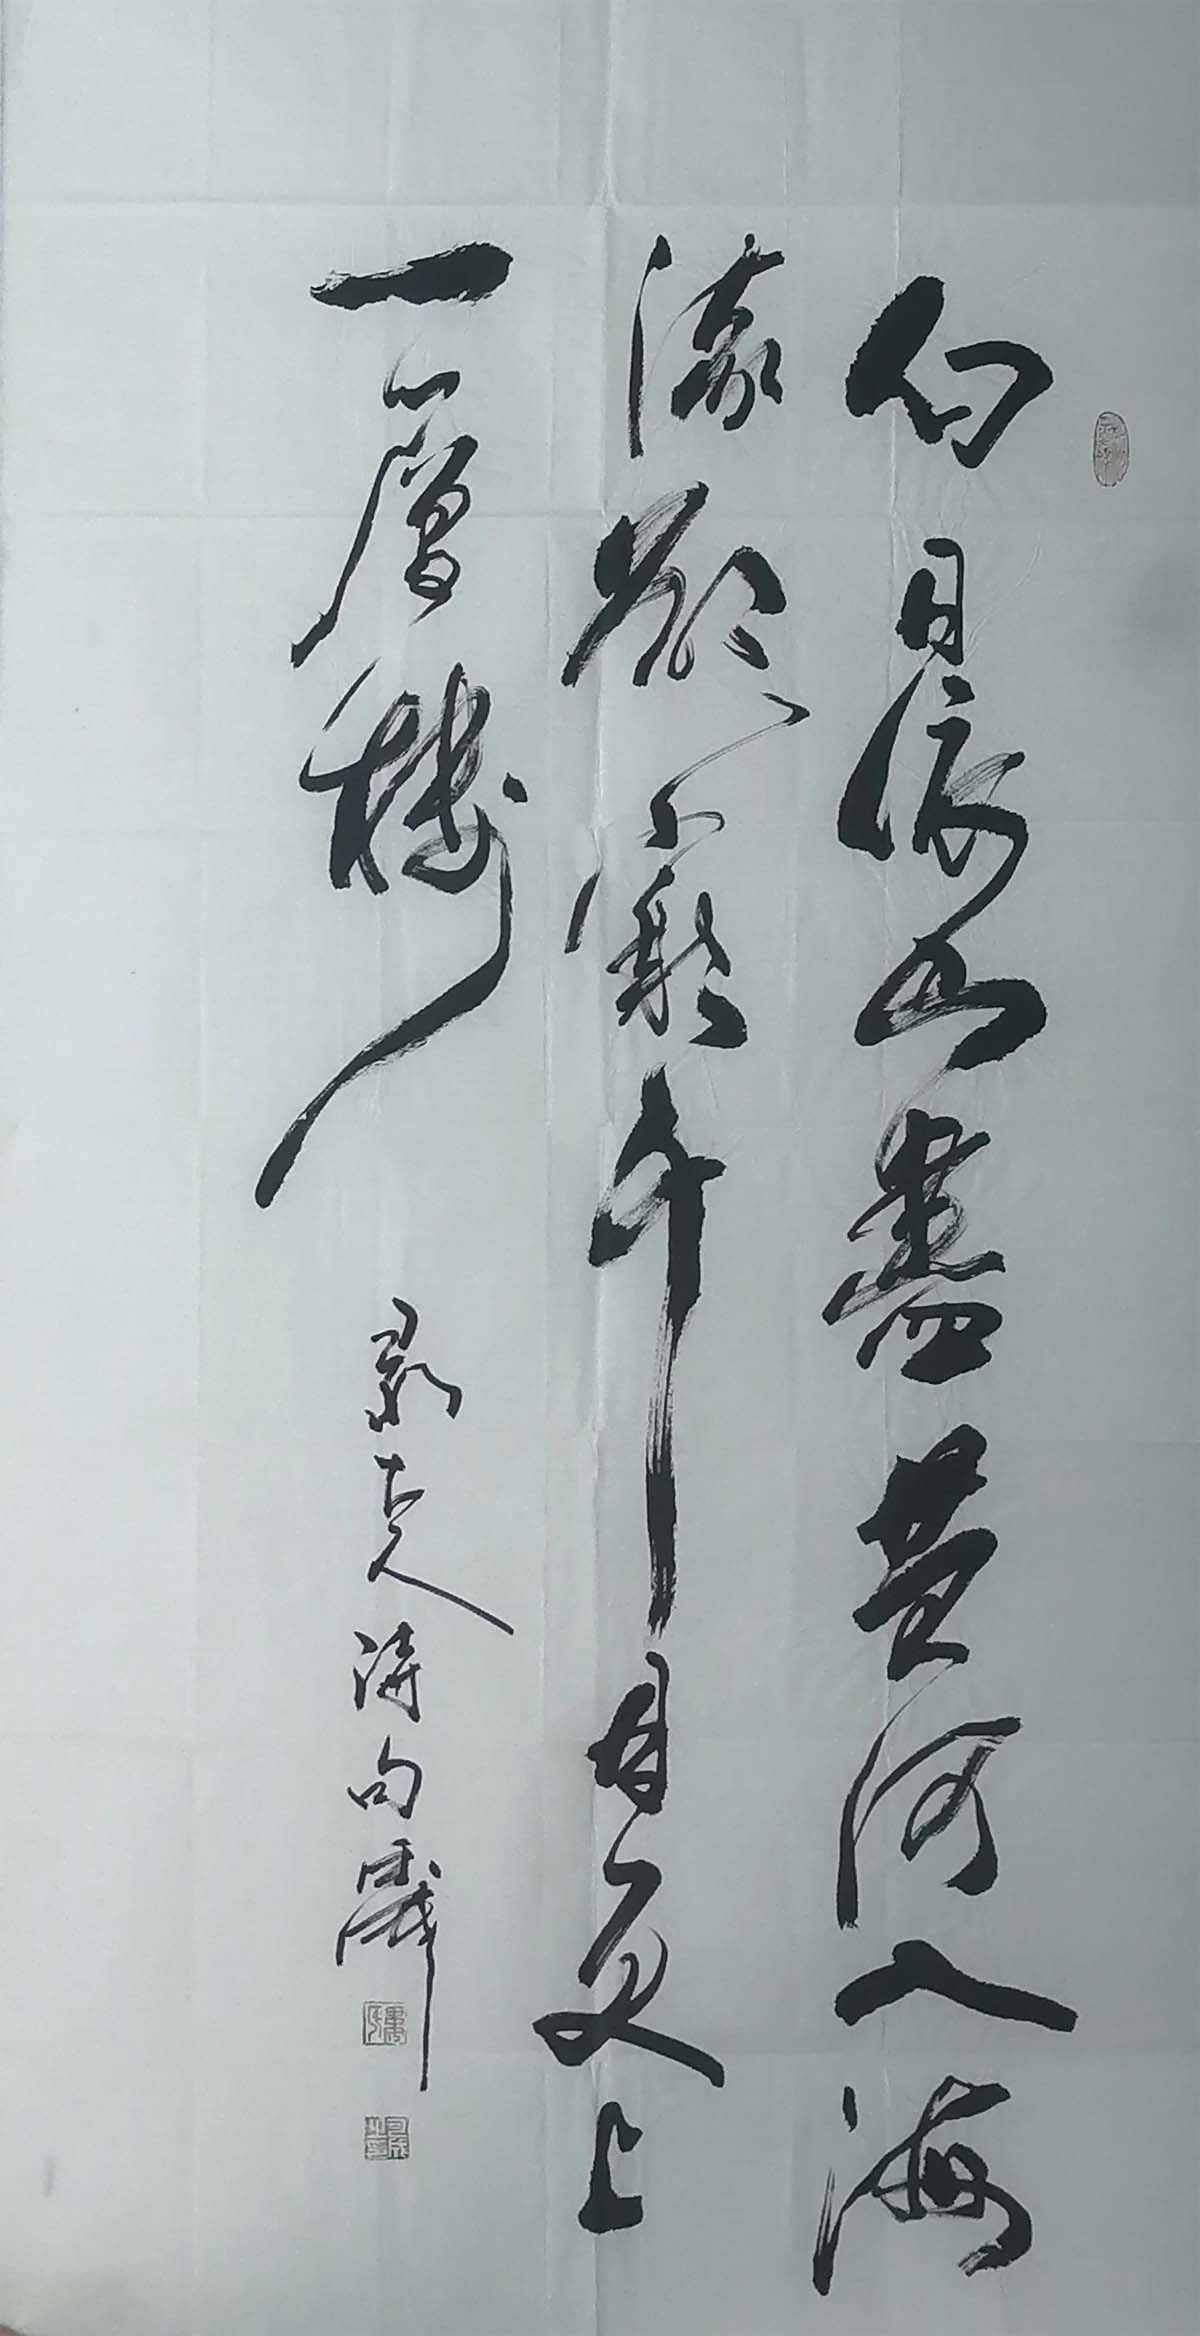 白日依山盡黄河入海
流欲窮千目更上
一層樓
录古人诗句